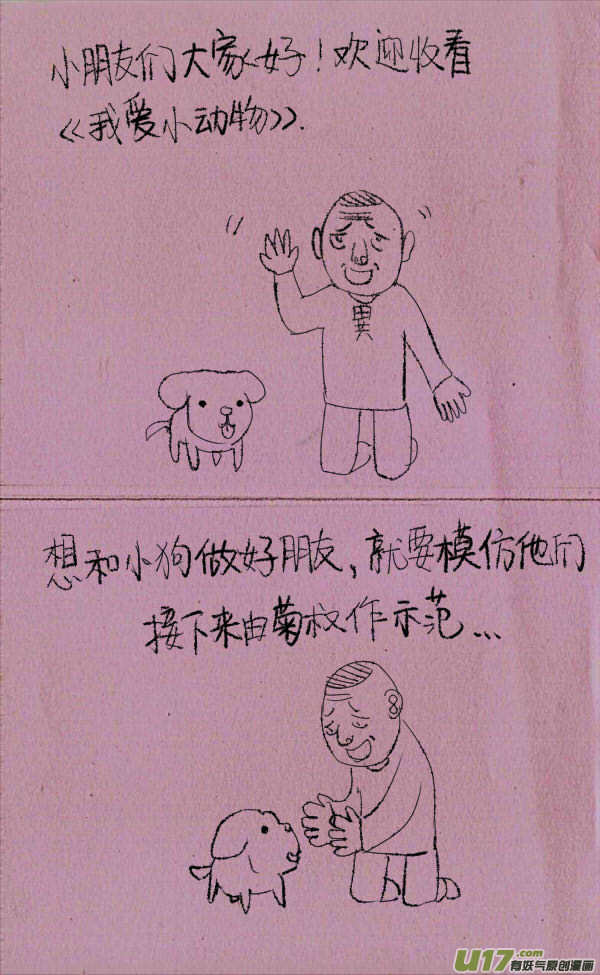 小朋友们大家好！欢迎收看
《我爱小动物》.
男
想和小狗做好朋友，就要模仿他们
接下来由菊叔作示范...
U17.com
有妖气原创漫画